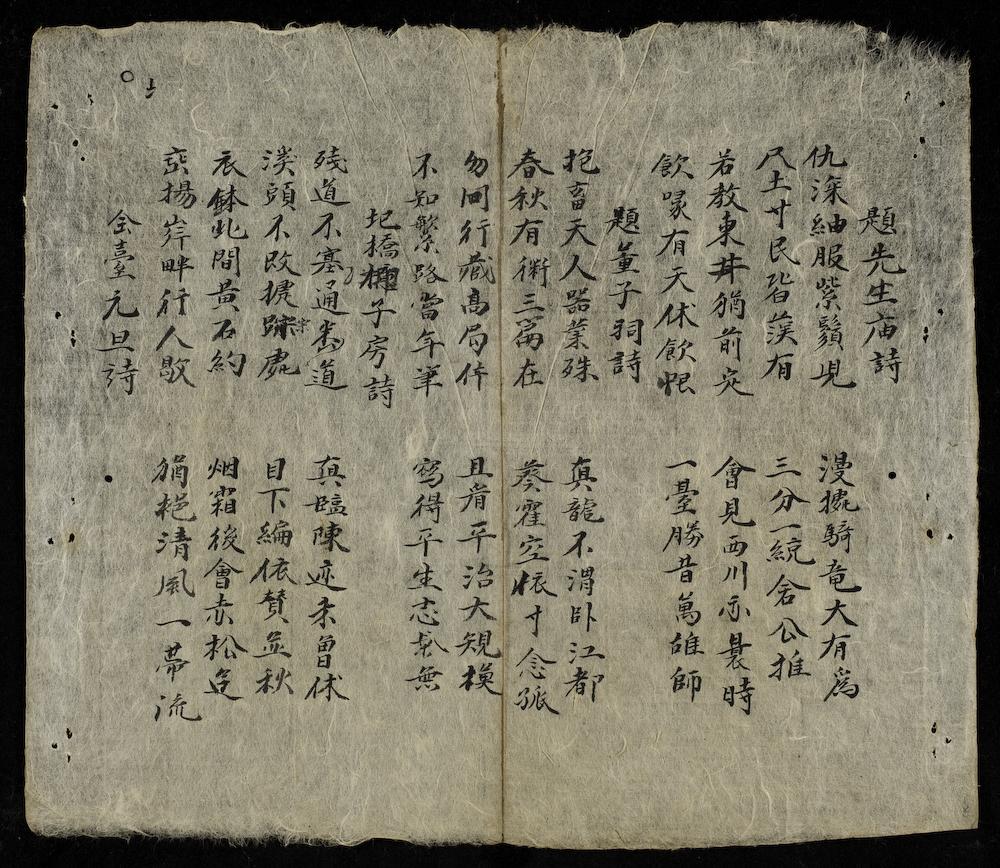 題先生庙詩
仇深紬服紫鬚児　漫擾騎竜大有爲
尺土寸民皆漢有　三分一統舍公推
若教東井猶前灾　會見西川亦曩時
飲喙有天休飲恨　一臺勝昔萬雄師
題董子祠詩
抱畜天人器業殊　真龍不渭卧江都
春秋有術三爲在　葵藿空懐寸念孤
勿囘行藏髙局仵　且看平治大規模
不知繁路當年筆　寫得平生志業無
圯橋子房詩
残道不塞通道　真臨陳迹未曽休
漢頭不改處　目下編依賛並秋
衣鉢此間黄石約　烟霜後會赤松逰
揚岸畔行人歇　猶挹清風一帶流
金臺元旦詩